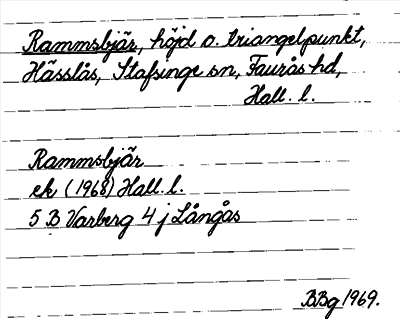 Rammsbjär, höjd o. triangelpunkt,
Hässlås, Stafsinge sn, Faurås hd,
Hall. l.
Rammsbjär
ek (1968) Hall. l.
5 B Varberg 4 j Långås
BBg 1969.